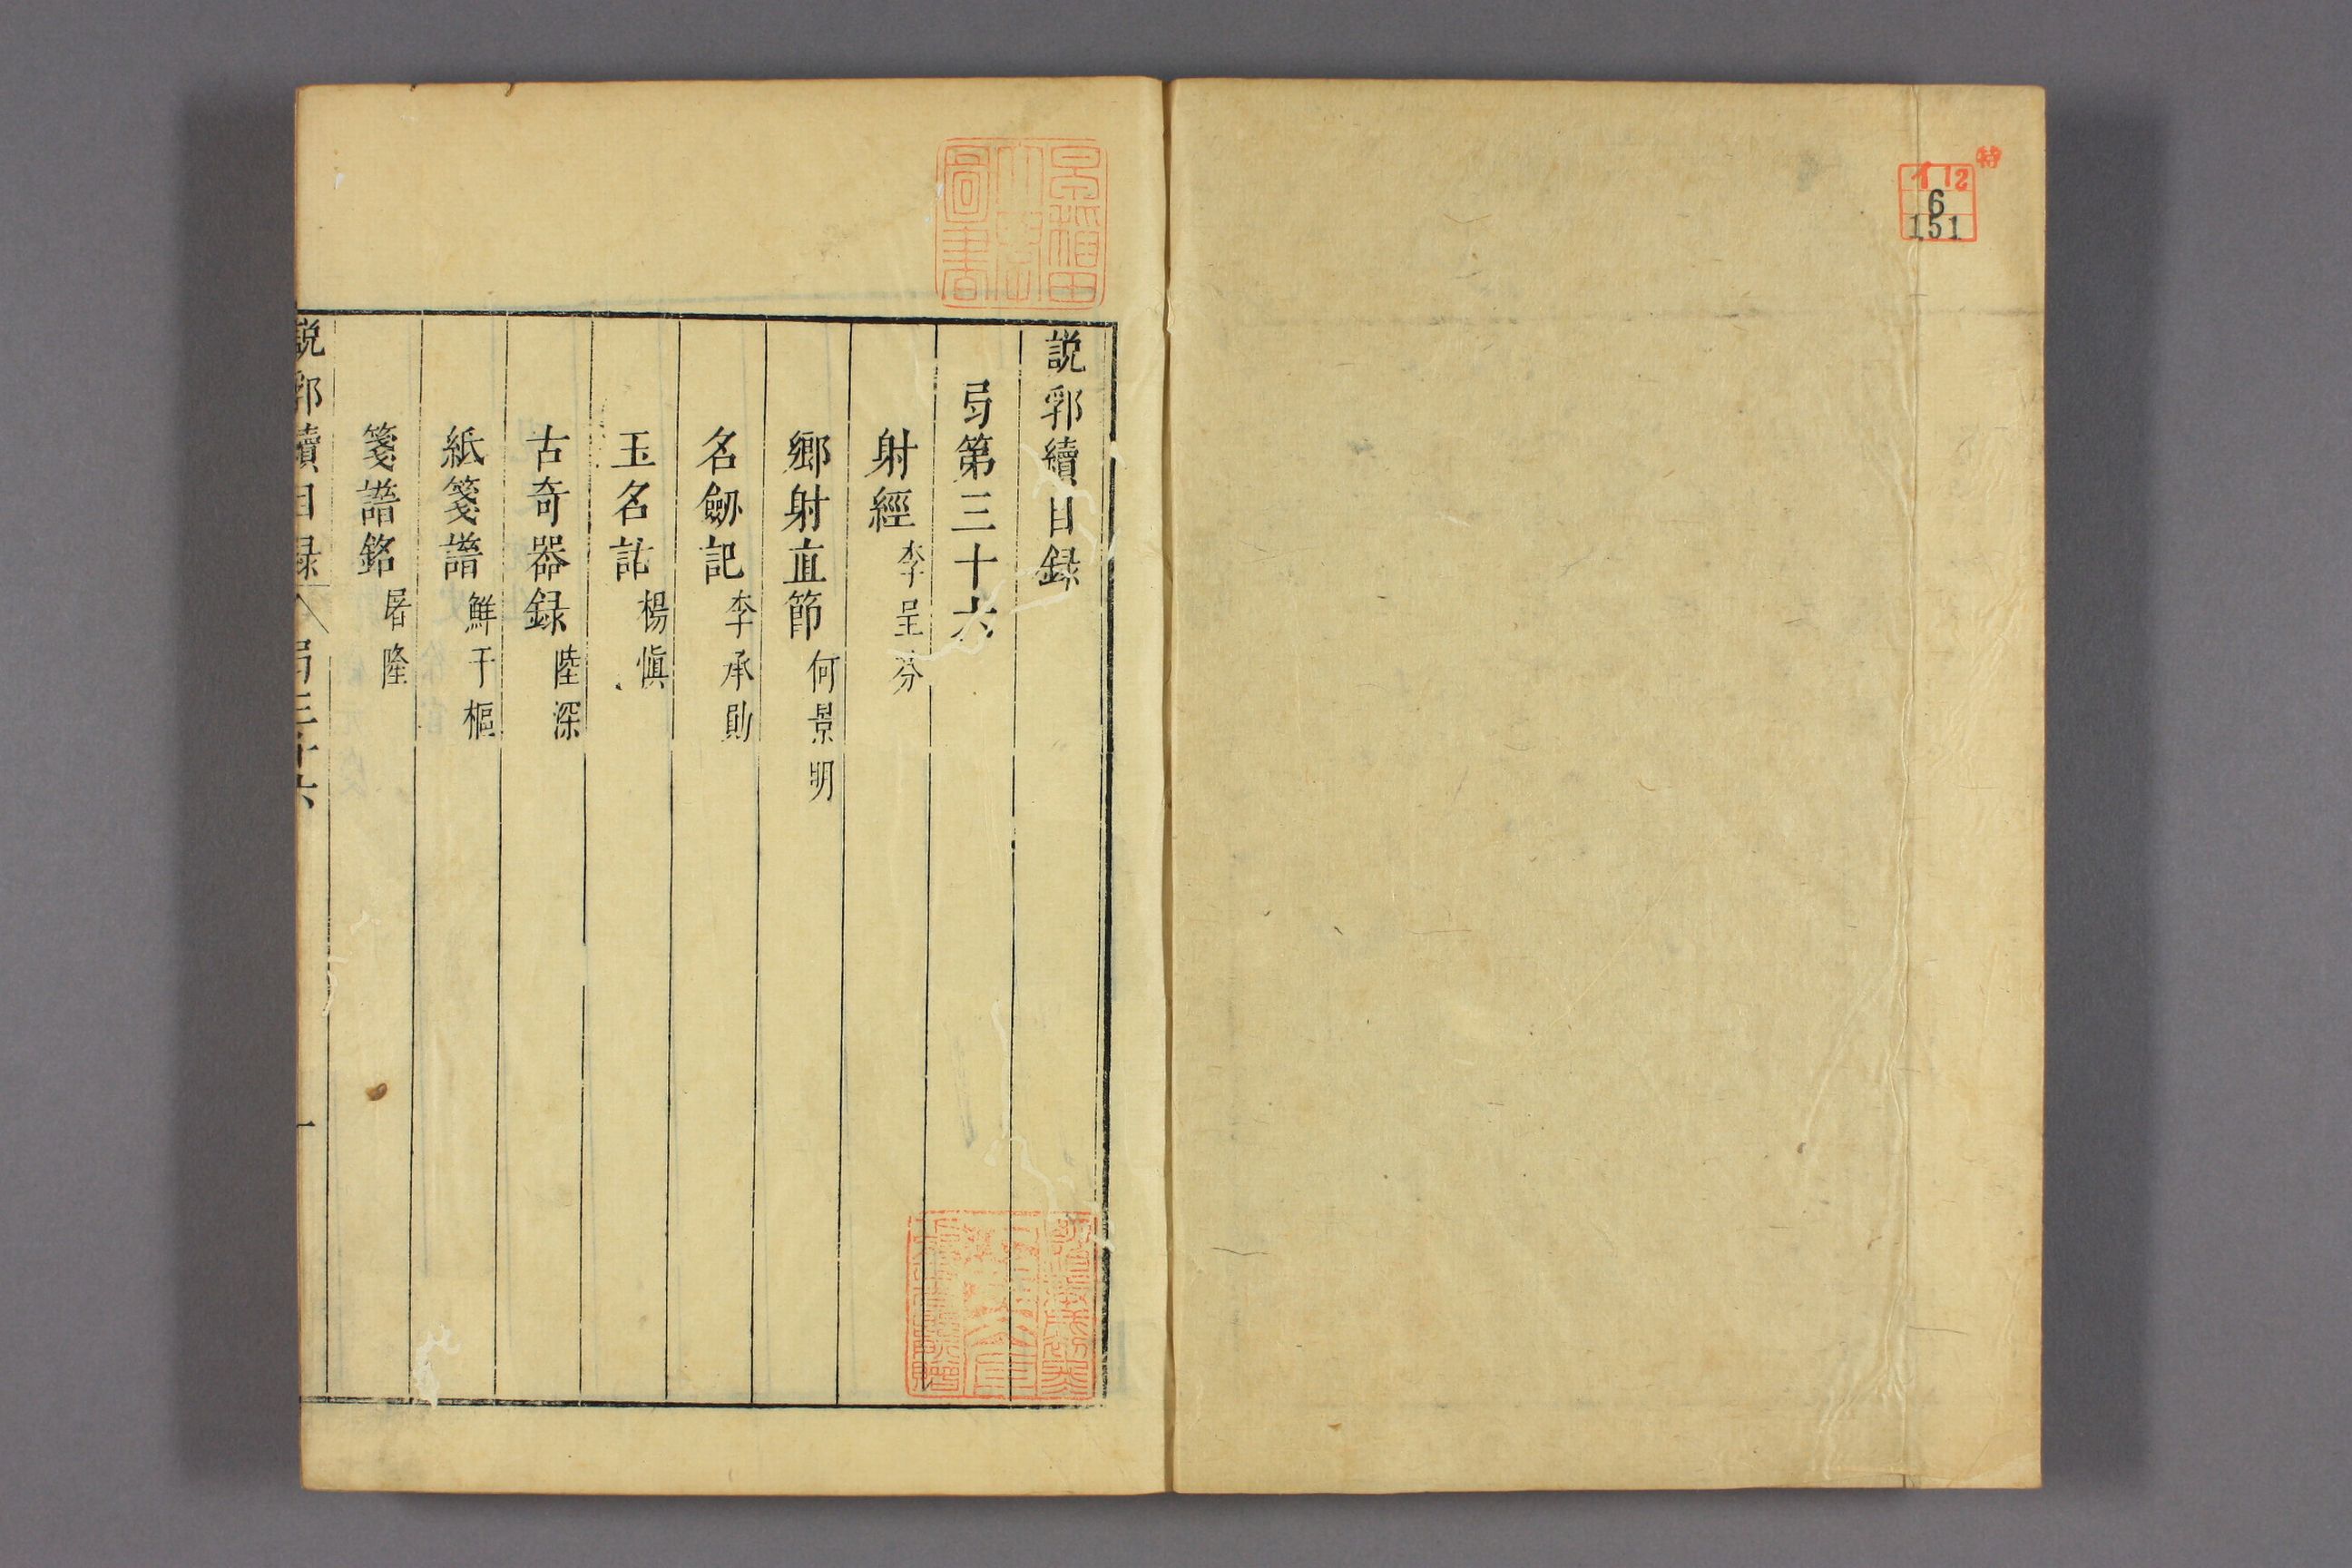 特
イ12
6
151
早稲田
大學
圖書
説郛續目録
弓第三十六
射經 李呈芬
鄉射直節 何景明
名劒記 李承勛
玉名詁 楊慎
古奇器録 陸深
紙箋譜 鮮于樞
箋譜銘 屠隆
説郛續目録 弓三十六 一